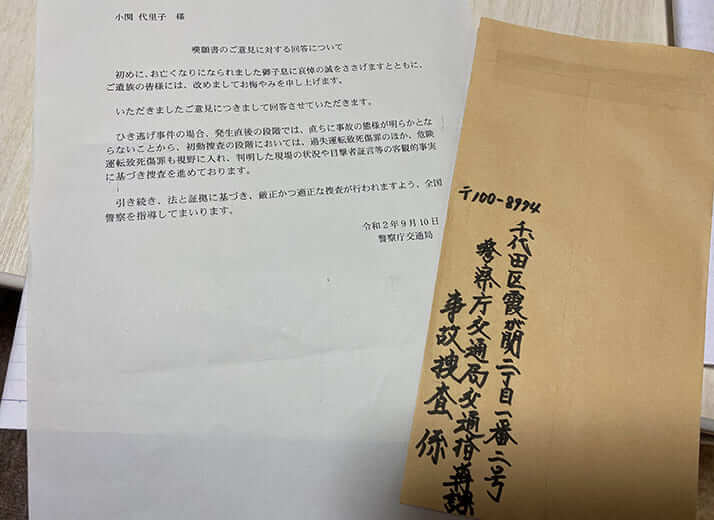 小関 代里子 様
嘆願書のご意見に対する回答について
初めに、お亡くなりになられました御子息に哀悼の誠をささげますとともに、
ご遺族の皆様には、改めましてお悔やみを申し上げます。
いただきましたご意見につきまして回答させていただきます。
ひき逃げ事件の場合、発生直後の段階では、直ちに事故の態様が明らかとな
らないことから、初動捜査の段階においては、過失運転致死傷罪のほか、危険
運転致死傷罪も視野に入れ、判明した現場の状況や目撃者証言等の客観的事実
に基づき捜査を進めております。
引き続き、法と証拠に基づき、厳正かつ適正な捜査が行われますよう、全国
警察を指導してまいります。
令和2年9月10日
警察庁交通局
〒100-8974
千代田区霞が関二丁目一番二号
警察庁交通局交通指導課
事故捜査係